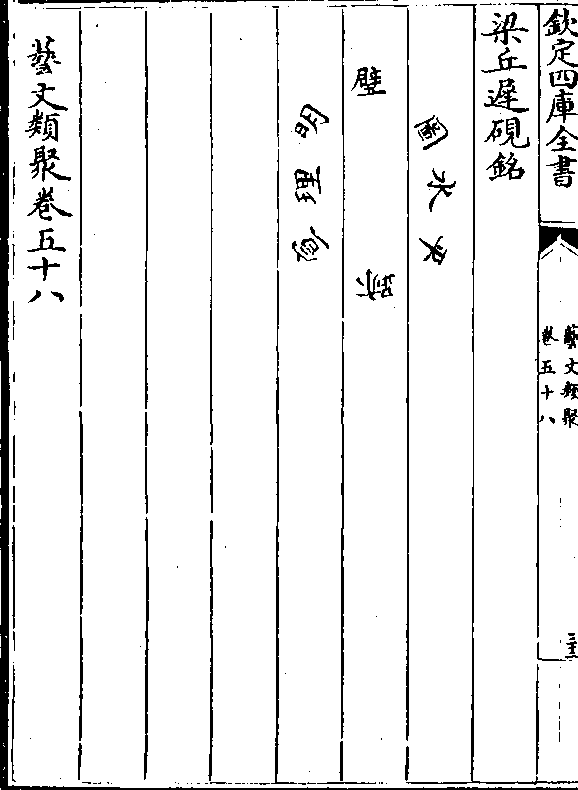 欽定四庫全書
藝文類聚
卷五十八
梁丘遲硯銘
璧
圓
水
理
明
藝文類聚卷五十八